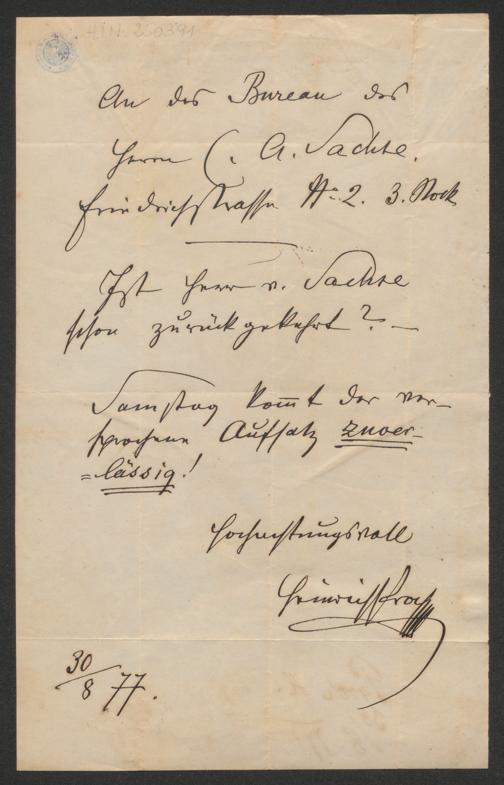 H.I.N. 250391
An das Bureau des
Herrn C. A. Sachse.
Friedrichstrasse No 2. 3. Stock
Ist Herr v. Sachse
schon zurückgekehrt? –
Samstag kom̅t der ver-
sprochene Aufsatz zuver-
=lässig!
Hochachtungsvoll
Heinrich
30/8 77.